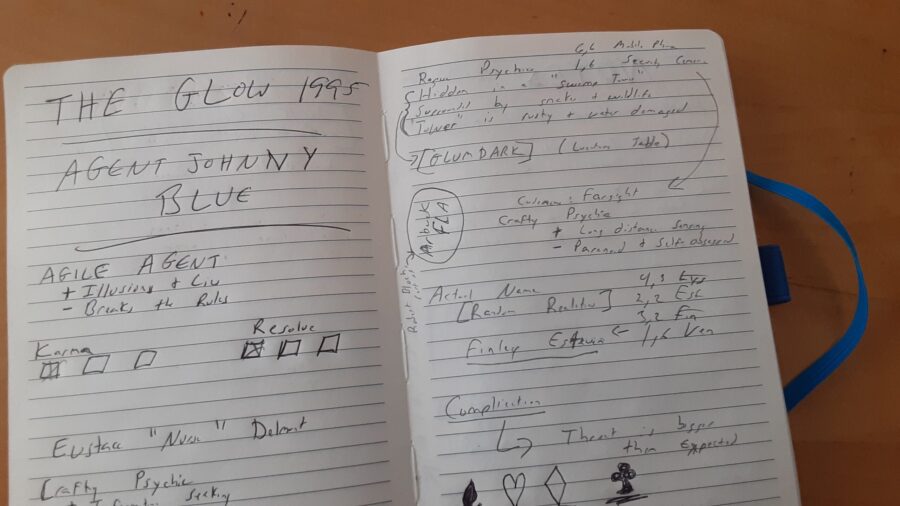 THE GLOW 1995
AGENT JOHNNY
BLUE
AGILE AGENT
+ Illusions + Lies
- Breaks the Rules
Karma
Resolve
Eustace "Nuse" Delmont
Crafty Psychic
+ Information Seeking
6,6 Mobile Phone
Rogue Psychic 1,6 Security Camera
Hidden in a "Swamp Tower"
Surrounded by snakes + wildlife
"Tower" is rusty + water damaged
[GLUMDARK] (Location Table)
FLA
Codename: Farsight
Crafty Psychic
+ Long distance sensing
- Paranoid + Self obsessed
Actual Name
[Random Realities]
4,3
2,2 Est
3,2 Fin
1,6 Ven
Finley
Complication
Threat is bigger
than Expected